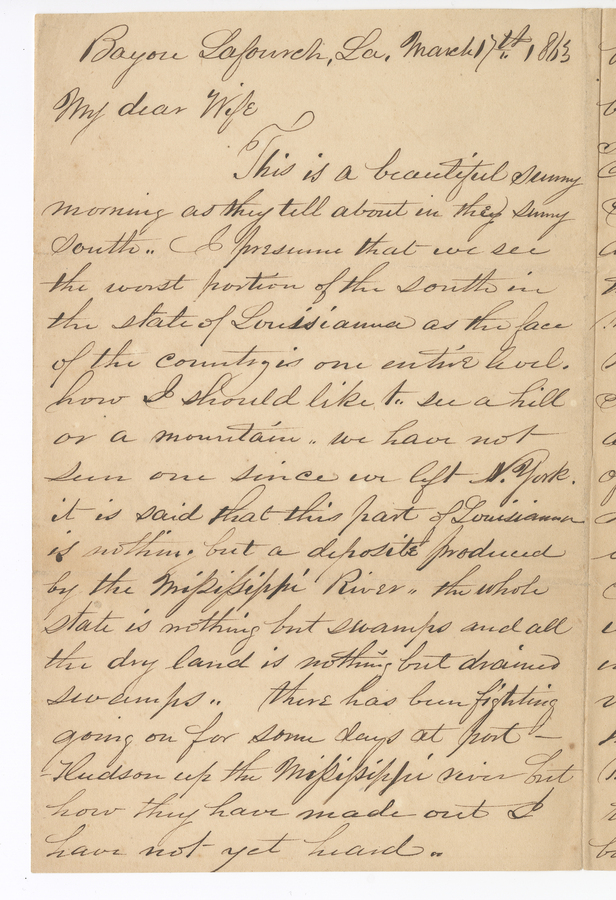 Bayou Lafourch, La. March 17th 1863
My dear Wife
This is a beautiful sunny
morning as they tell about in they sunny
South.. I presume that we see
the worst portion of the south in
the state of Louisianna as the face
of the country is one entire level.
how I should like to see a hill
or a mountain .. we have not
seen one since we left N. York.
it is said that this part of Louisianna
is nothing but a deposite produced
by the Missisippi River .. the whole
state is nothing but swamps and all
the dry land is nothing but drained
swamps .. there has been fighting
going on for some days at port-
-Hudson up the Missisippi river but
how they have made out I
have not yet heard ..